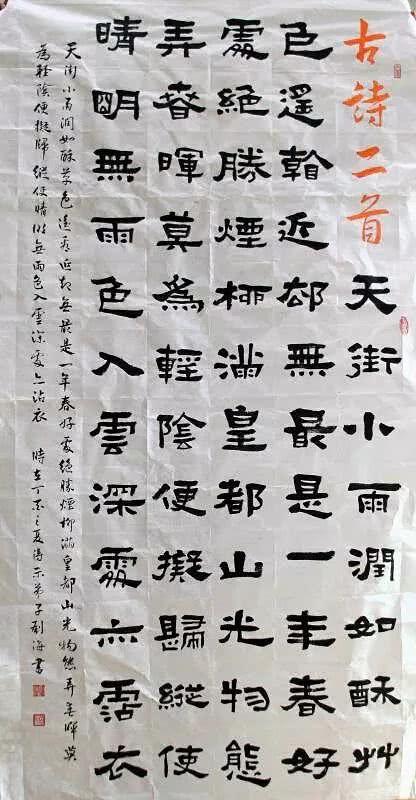 古詩二首
天街小雨潤如酥艸
色遥看近却無最是一年春好
處絶勝煙柳滿皇都山光物態
弄春暉莫為輕陰便擬歸縱使
晴明無雨色入雲深處亦霑衣
天街小雨潤如酥草色遠看近却無最是一年春好處絶勝煙柳滿皇都山光物態弄春暉莫
為輕陰便擬歸縱使晴明無雨色入雲深處亦沾衣 時在丁亥之夏示弟子劉海書